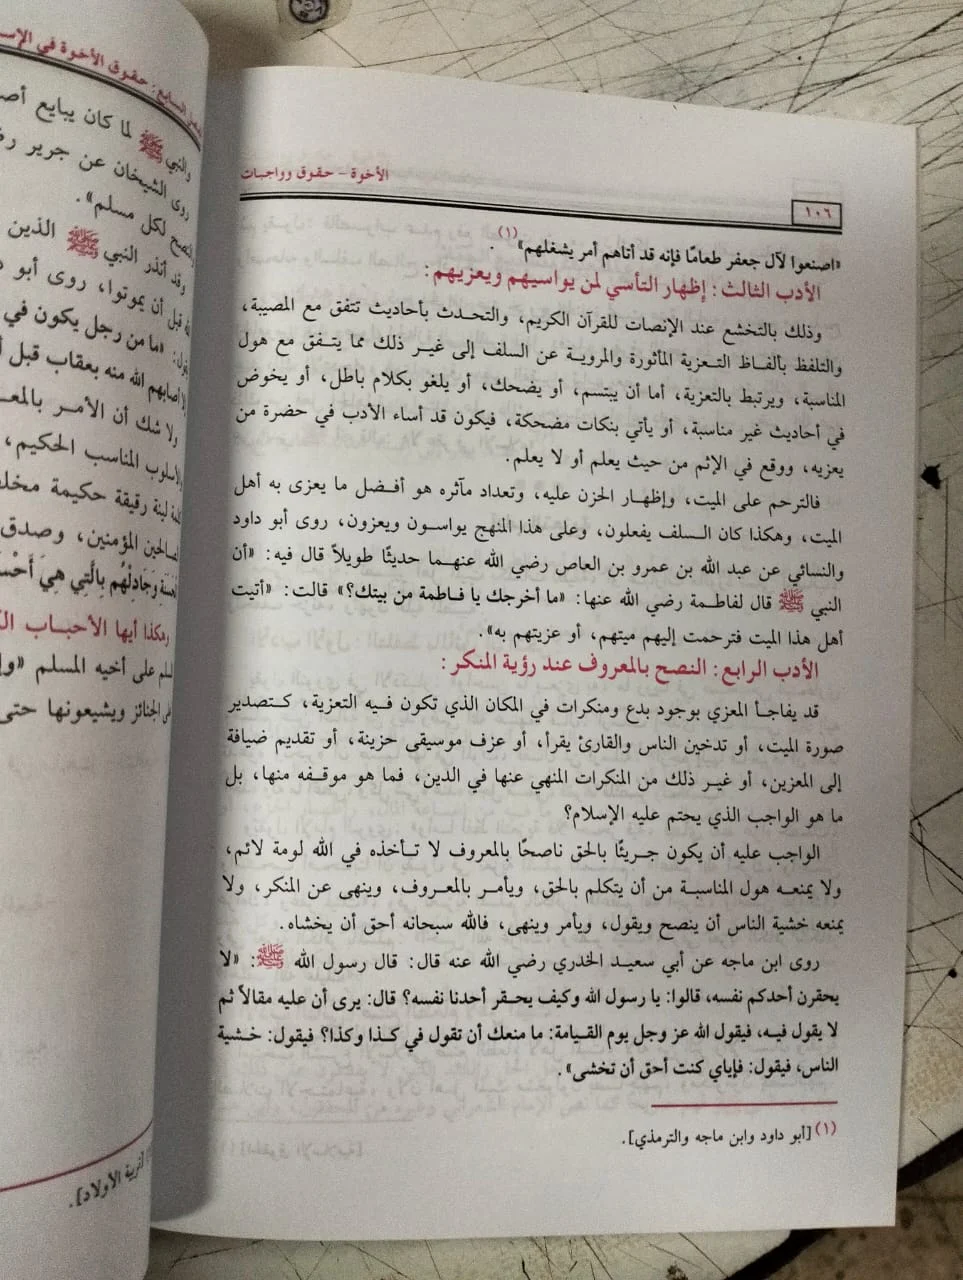 الأخوة - حقوق وواجبات
١٠٦
«اصنعوا لآل جعفر طعامًا فإنه قد أتاهم أمر يشغلهم» (١).
الأدب الثالث: إظهار التأسي لمن يواسيهم ويعزيهم:
وذلك بالتخشع عند الإنصات للقرآن الكريم، والتحدث بأحاديث تتفق مع المصيبة،
والتلفظ بألفاظ التعزية المأثورة والمروية عن السلف إلى غير ذلك مما يتفق مع هول
المناسبة، ويرتبط بالتعزية، أما أن يبتسم، أو يضحك، أو يلغو بكلام باطل، أو يخوض
في أحاديث غير مناسبة، أو يأتي بنكات مضحكة، فيكون قد أساء الأدب في حضرة من
يعزيه، ووقع في الإثم من حيث يعلم أو لا يعلم.
فالترحم على الميت، وإظهار الحزن عليه، وتعداد مآثره هو أفضل ما يعزى به أهل
الميت، وهكذا كان السلف يفعلون، وعلى هذا المنهج يواسون ويعزون، روى أبو داود
والنسائي عن عبد الله بن عمرو بن العاص رضي الله عنهما حديثًا طويلاً قال فيه: «أن
النبي ﷺ قال لفاطمة رضي الله عنها: «ما أخرجك يا فاطمة من بيتك؟» قالت: «أتيت
أهل هذا الميت فترحمت إليهم ميتهم، أو عزيتهم به».
الأدب الرابع: النصح بالمعروف عند رؤية المنكر:
قد يفاجأ المعزي بوجود بدع ومنكرات في المكان الذي تكون فيه التعزية، كتصدير
صورة الميت، أو تدخين الناس والقارئ يقرأ، أو عزف موسيقى حزينة، أو تقديم ضيافة
إلى المعزين، أو غير ذلك من المنكرات المنهي عنها في الدين، فما هو موقفه منها، بل
ما هو الواجب الذي يحتم عليه الإسلام؟
الواجب عليه أن يكون جريئًا بالحق ناصحًا بالمعروف لا تأخذه في الله لومة لائم،
ولا يمنعه هول المناسبة من أن يتكلم بالحق، ويأمر بالمعروف، وينهى عن المنكر، ولا
يمنعه خشية الناس أن ينصح ويقول، ويأمر وينهى، فالله سبحانه أحق أن يخشاه.
روى ابن ماجه عن أبي سعيد الخدري رضي الله عنه قال: قال رسول الله ﷺ: «لا
يحقرن أحدكم نفسه، قالوا: يا رسول الله وكيف يحقر أحدنا نفسه؟ قال: يرى أن عليه مقالاً ثم
لا يقول فيه، فيقول الله عز وجل يوم القيامة: ما منعك أن تقول في كذا وكذا؟ فيقول: خشية
الناس، فيقول: فإياي كنت أحق أن تخشى».
(١) [أبو داود وابن ماجه والترمذي].
حقوق الأخوة في
والنبي ﷺ لما كان يبايع
روى الشيخان عن جرير
والنصح لكل مسلم».
وقد أنذر النبي ﷺ الذين
قبل أن يموتوا، روى أبو
يقول: «ما من رجل يكون في
إلا أصابهم الله منه بعقاب قبل
ولا شك أن الأمر
والأسلوب المناسب الحكيم،
كلمة لينة رقيقة حكيمة
الصالحين المؤمنين، وصدق
وَجَادِلْهُم بِالَّتِي هِيَ
وهكذا أيها الأحباب
المسلم على أخيه المسلم
على الجنائز ويشيعونها حتى
[تربية الأولاد].